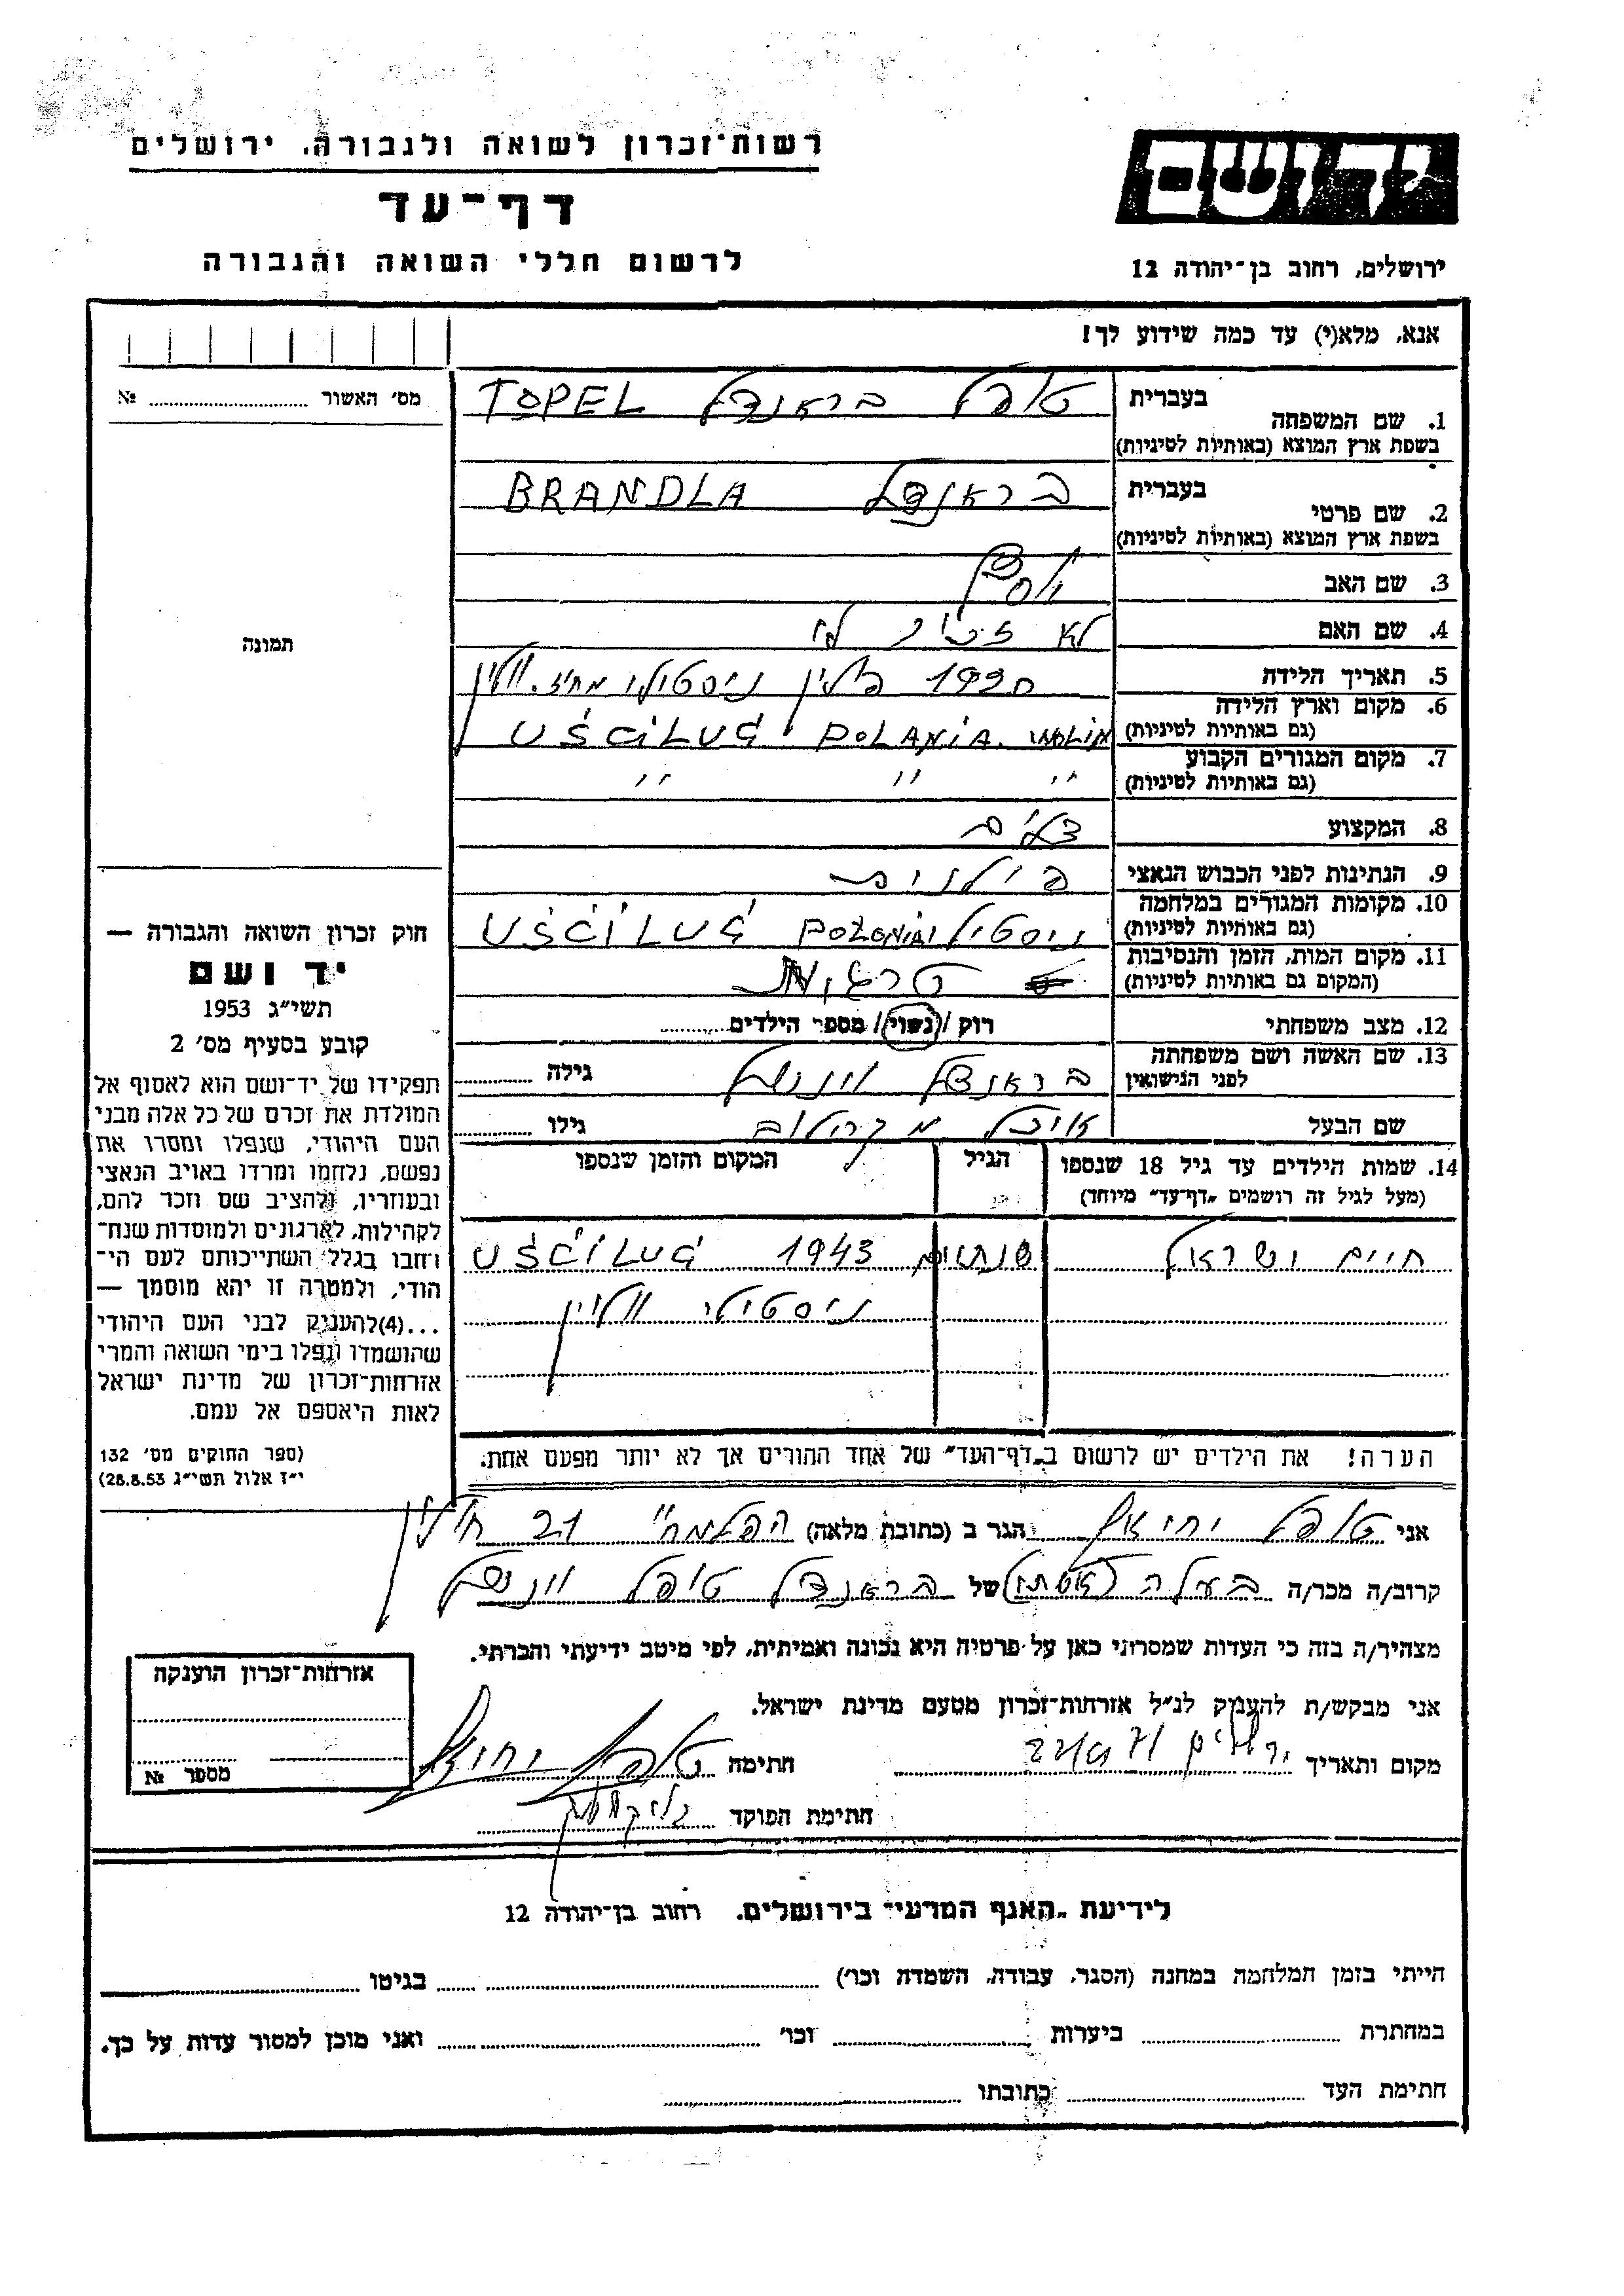 רשות־זכרון לשואה ולגבורה, ירושלים
דף־עד
לרשום חללי השואה והגבורה
ידושם
ירושלים, רחוב בן־יהודה 12
אנא, מלא(י) עד כמה שידוע לך!
מס׳ האשור № ..........
תמונה
חוק זכרון השואה והגבורה —
יד ושם
תשי״ג 1953
קובע בסעיף מס׳ 2
תפקידו של יד־ושם הוא לאסוף אל
המולדת את זכרם של כל אלה מבני
העם היהודי, שנפלו ומסרו את
נפשם, נלחמו ומרדו באויב הנאצי
ובעוזריו, ולהציב שם וזכר להם,
לקהילות, לארגונים ולמוסדות שנח־
רחבו בגלל השתייכותם לעם הי־
הודי, ולמטרה זו יהא מוסמך —
...(4)להעניק לבני העם היהודי
שהושמדו ונפלו בימי השואה והמרי
אזרחות־זכרון של מדינת ישראל
לאות היאספם אל עמם.
(ספר החוקים מס׳ 132
י״ז אלול תשי״ג 28.8.53)
1. שם המשפחה בעברית טופל בראנדל TOPEL
בשפת ארץ המוצא (באותיות לטיניות)
2. שם פרטי בעברית בראנדל BRANDLA
בשפת ארץ המוצא (באותיות לטיניות)
3. שם האב יוסף
4. שם האם לא זכור לי
5. תאריך הלידה 1920 פולין
6. מקום וארץ הלידה
(גם באותיות לטיניות) UŚCIŁUG POLANIA. WOLIN
7. מקום המגורים הקבוע ״ ״ ״
(גם באותיות לטיניות)
8. המקצוע
9. הנתינות לפני הכבוש הנאצי פולנית
10. מקומות המגורים במלחמה
(גם באותיות לטיניות) POLONIA UŚCIŁUG
11. מקום המות, הזמן והנסיבות
(המקום גם באותיות לטיניות)
12. מצב משפחתי רוק / נשוי / מספר הילדים ..........
13. שם האשה ושם משפחתה
לפני הנישואין בראנדל גילה ..........
שם הבעל גילו ..........
14. שמות הילדים עד גיל 18 שנספו הגיל המקום והזמן שנספו
(מעל לגיל זה רושמים „דף־עד״ מיוחד)
חיים ישראל שנתיים 1943 UŚCIŁUG
הערה! את הילדים יש לרשום ב„דף־העד״ של אחד ההורים אך לא יותר מפעם אחת.
אני טופל יחזאל הגר ב (כתובת מלאה) הפלמ״ח 21 חולון
קרוב/ה מכר/ה בעלה של בראנדל טופל
מצהיר/ה בזה כי העדות שמסרתי כאן על פרטיה היא נכונה ואמיתית, לפי מיטב ידיעתי והכרתי.
אני מבקש/ת להעניק לנ״ל אזרחות־זכרון מטעם מדינת ישראל.
מקום ותאריך ירושלים חתימה טופל יחזאל
חתימת הפוקד
אזרחות־זכרון הוענקה
מספר №
לידיעת „האגף המדעי״ בירושלים, רחוב בן־יהודה 12
הייתי בזמן המלחמה במחנה (הסגר, עבודה, השמדה וכו׳) .......... בגיטו ..........
במחתרת .......... ביערות .......... וכו׳ .......... ואני מוכן למסור עדות על כך.
חתימת העד .......... כתובתו ..........